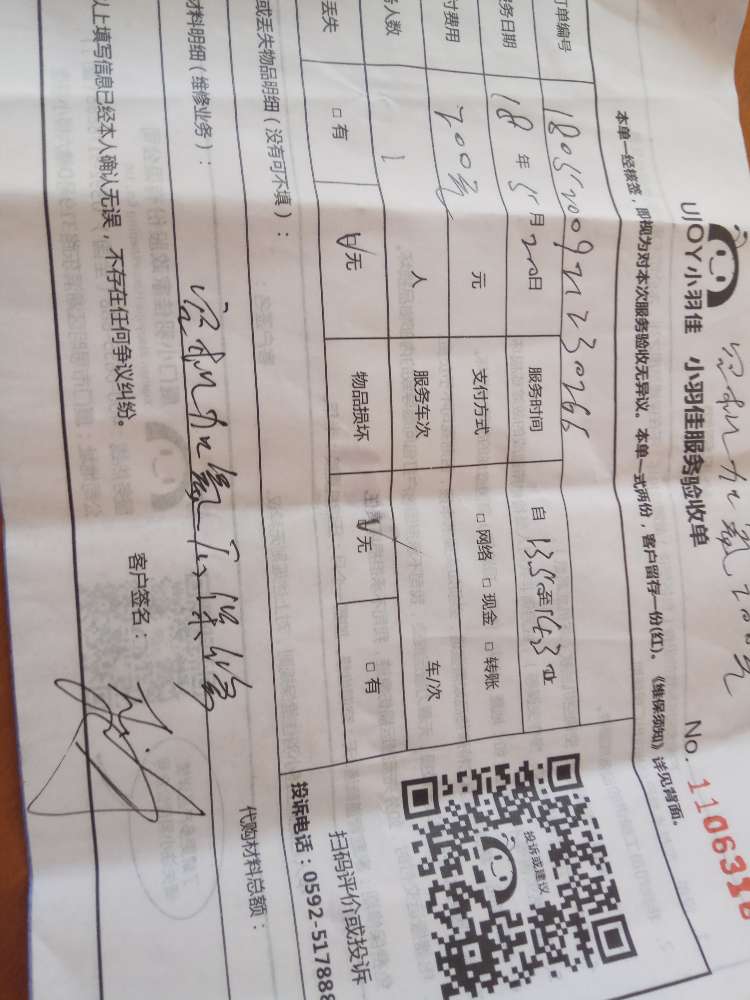 空调加氟200元
UJOY小羽佳 小羽佳服务验收单 No. 1106316
本单一经核签，即视为对本次服务验收无异议。本单一式两份，客户留存一份(红)。《维保须知》详见背面。
订单编号
务日期 18 年 5 月 20 日 服务时间 自 13.5 至 14.30
付费用 200元 元 支付方式 □ 网络 □ 现金 □ 转账
务人数 1 人 服务车次 车/次
丢失 □ 有 ☑ 无 物品损坏 ☑ 无 □ 有
投诉或建议
扫码评价或投诉
投诉电话：0592-517888
或丢失物品明细（没有可不填）：
材料明细（维修业务）： 代购材料总额：
空调加氟
以上填写信息已经本人确认无误，不存在任何争议纠纷。 客户签名：